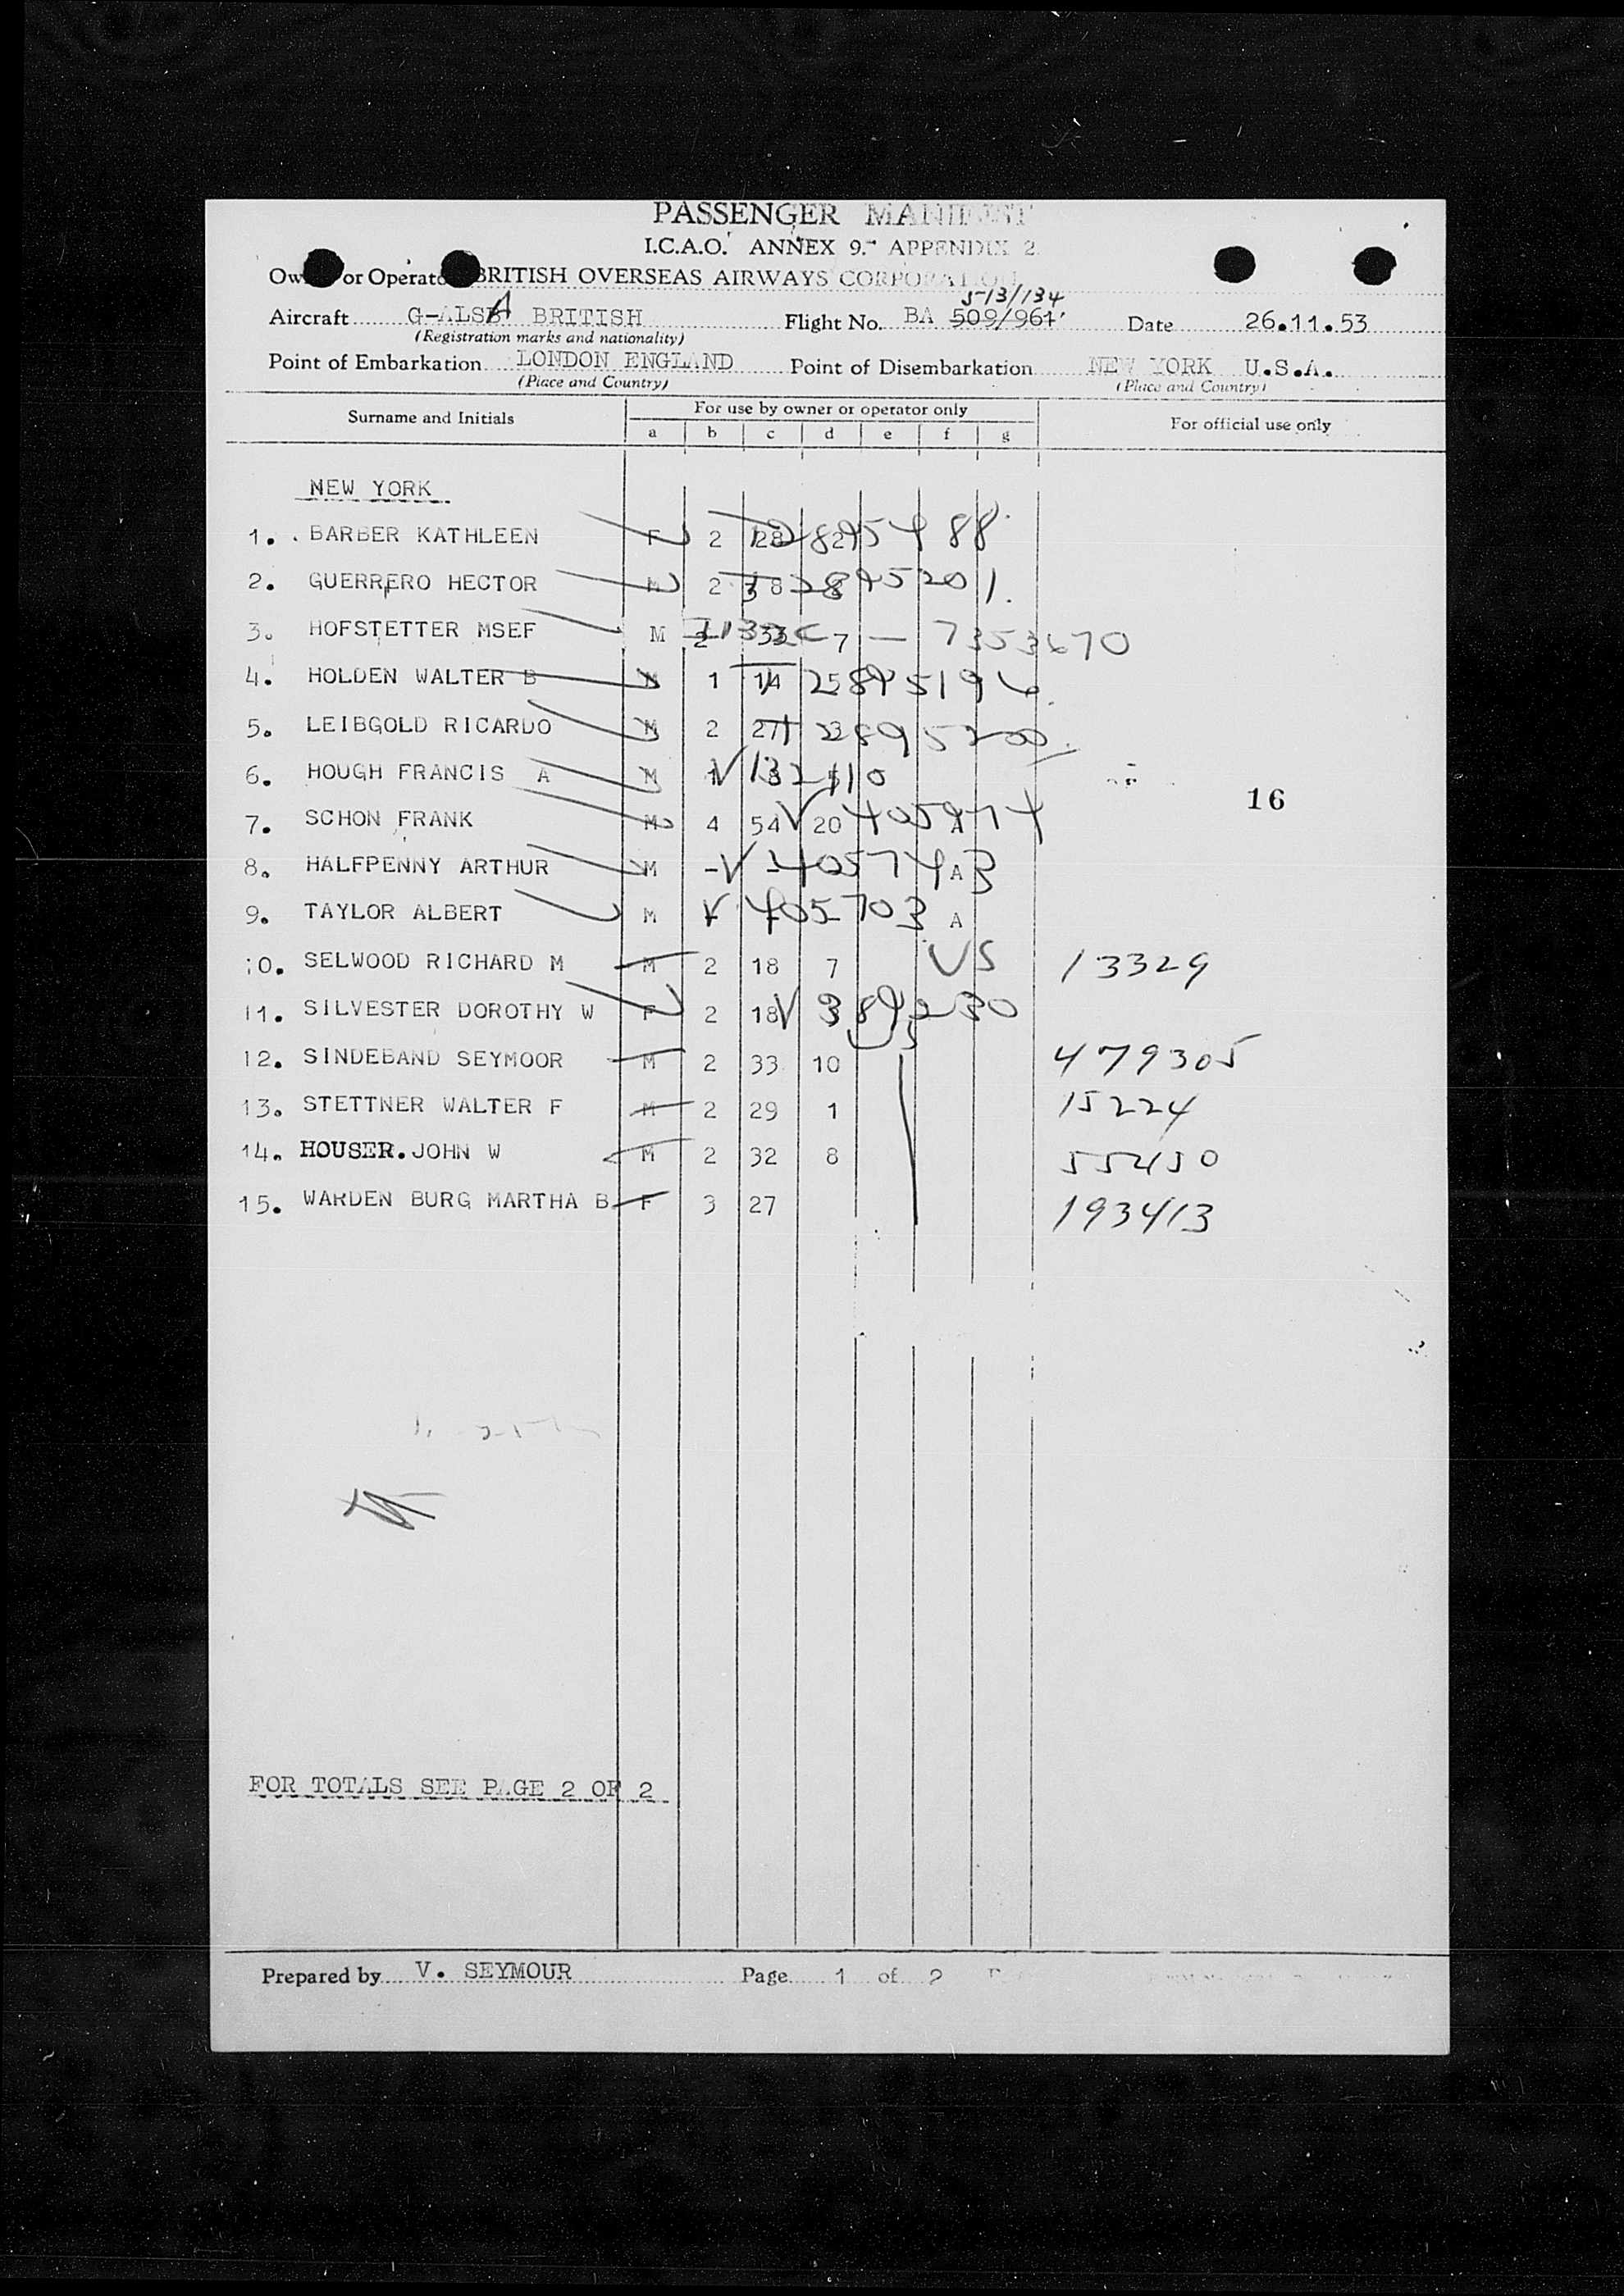 PASSENGER MANIFEST
I.C.A.O. ANNEX 9.- APPENDIX 2
or Operator BRITISH OVERSEAS AIRWAYS CORPORATION
513/134
Aircraft G-ALSB A BRITISH Flight No. BA 509/961 Date 26.11.53
(Registration marks and nationality)
Point of Embarkation LONDON ENGLAND Point of Disembarkation NEW YORK U.S.A.
(Place and Country) (Place and Country)
Surname and Initials For use by owner or operator only For official use only
a b c d e f g
NEW YORK
1. BARBER KATHLEEN F 2
2. GUERRERO HECTOR M 2
3. HOFSTETTER MSEF M 2 33 7 — 7353670
4. HOLDEN WALTER B M 1 14
5. LEIBGOLD RICARDO M 2 27
6. HOUGH FRANCIS A M
16
7. SCHON FRANK M 4 54 20 405974 A
8. HALFPENNY ARTHUR M - 405743 A
9. TAYLOR ALBERT M 405703 A
10. SELWOOD RICHARD M M 2 18 7 US 13329
11. SILVESTER DOROTHY W F 2 18
12. SINDEBAND SEYMOOR M 2 33 10 US 479305
13. STETTNER WALTER F M 2 29 1 15224
14. HOUSER.JOHN W M 2 32 8 55450
15. WARDEN BURG MARTHA B F 3 27 193413
FOR TOTALS SEE PAGE 2 OF 2
Prepared by V. SEYMOUR Page 1 of 2